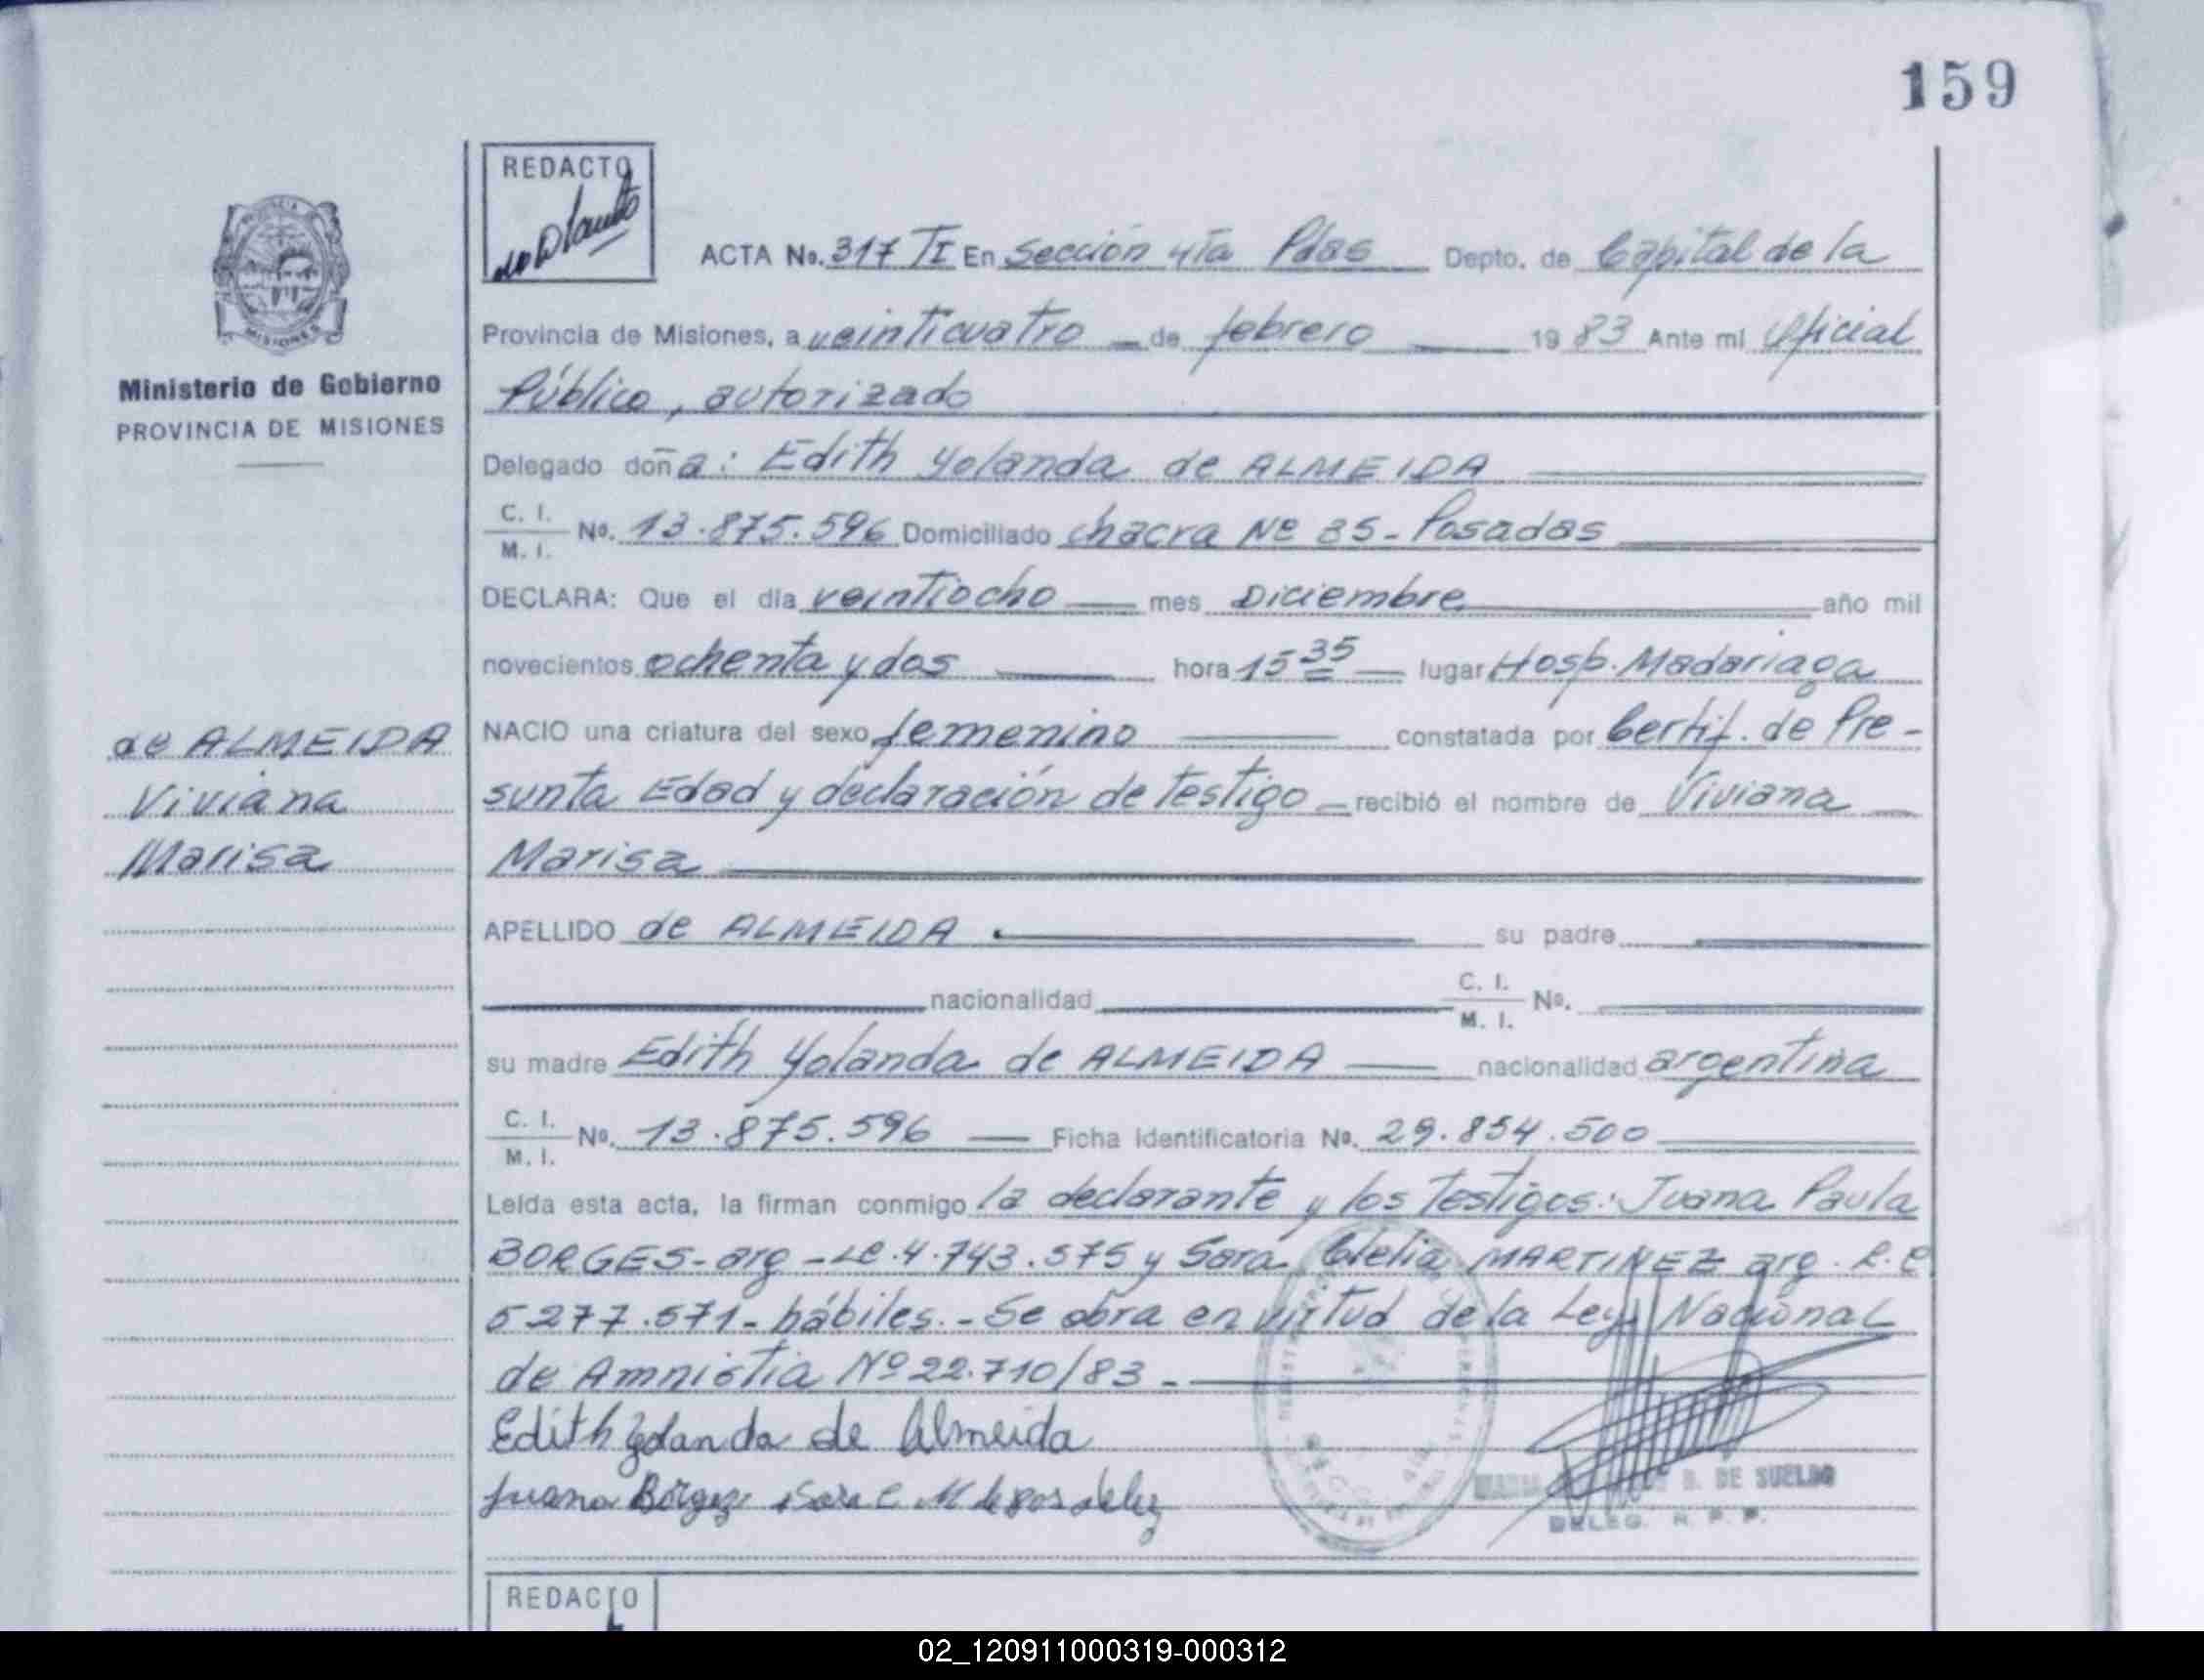 159
REDACTO
ACTA No. 317 TI En Sección 4Ta Pdas Depto. de Capital de la
Provincia de Misiones, a veinticuatro de febrero 1983 Ante mi Oficial
Público, autorizado
Delegado doña: Edith Yolanda de ALMEIDA
C. I.
M. I. No. 13.875.596 Domiciliado chacra Nº 35 - Posadas
DECLARA: Que el día veintiocho mes Diciembre año mil
novecientos ochenta y dos hora 15 35 lugar Hosp. Madariaga
NACIO una criatura del sexo femenino constatada por Certif. de Pre-
sunta Edad y declaración de Testigo recibió el nombre de Viviana
Marisa
APELLIDO de ALMEIDA su padre
nacionalidad C. I.
M. I. No.
su madre Edith Yolanda de ALMEIDA nacionalidad argentina
C. I.
M. I. No. 13.875.596 Ficha Identificatoria No. 29.854.500
Leída esta acta, la firman conmigo la declarante y los Testigos: Juana Paula
BORGES - arg - LC. 4.743.575 y Sara Clelia MARTINEZ arg. L.C
5277.571 - hábiles. - Se obra en virtud de la Ley Nacional
de Amnistia Nº 22.710/83 -
Edith Yolanda de Almeida
Juana Borges Sara C. M de
DE SUELDO
DELEG. R. P. P.
REDACTO
PROVINCIA DE
MISIONES
Ministerio de Gobierno
PROVINCIA DE MISIONES
de ALMEIDA
Viviana
Marisa
02_120911000319-000312